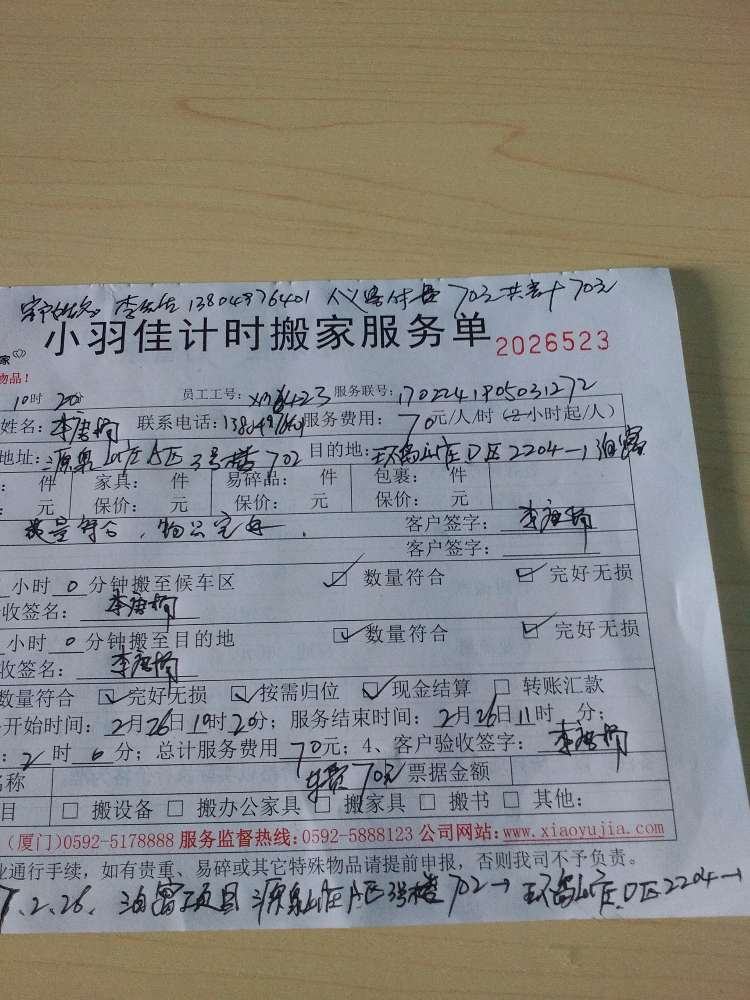 李先生 13804976401 70元 共计70元
小羽佳计时搬家服务单 2026523
家
物品！
10时20分 员工工号： 服务联号：1702241905031272
姓名： 联系电话： 服务费用：70元/人/时（2小时起/人）
地址：源泉山庄A区3号楼702 目的地：环岛山庄D区2204-1
： 件 家具： 件 易碎品： 件 包裹： 件
： 元 保价： 元 保价： 元 保价： 元
数量符合，物品完好。 客户签字：
客户签字：
小时0分钟搬至候车区 ☑ 数量符合 ☑ 完好无损
收签名：
小时0分钟搬至目的地 ☑ 数量符合 ☑ 完好无损
收签名：
数量符合 ☑ 完好无损 ☑ 按需归位 ☑ 现金结算 □ 转账汇款
开始时间：2月26日10时20分；服务结束时间：2月26日11时 分；
：2时0分；总计服务费用70元；4、客户验收签字：
名称 车费70元 票据金额
目 □ 搬设备 □ 搬办公家具 □ 搬家具 □ 搬书 □ 其他：
（厦门）0592-5178888 服务监督热线：0592-5888123 公司网站：www.xiaoyujia.com
业通行手续，如有贵重、易碎或其它特殊物品请提前申报，否则我司不予负责。
7.2.26. 项目 源泉山庄A区3号楼702→环岛山庄D区2204-1